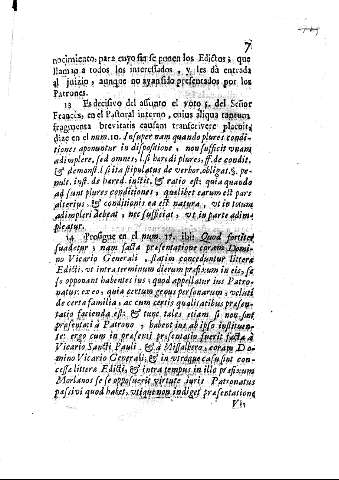 7
nocimiento, para cuyo fin se ponen los Edictos; que
llaman a todos los interessados, y les dà entrada
al juizio, aunque no ayan sido presentados por los
Patrones.
13 Es decisivo del assunto el voto 5. del Señor
Francès, en el Pastoral interno, cuius aliqua tantum
fragmenta brevitatis causam transcrivere placuit,
dize en el num. 10. & super nam quando plures condi-
tiones aponuntur in dispositione, non sufficit vnam
adimplere, sed omnes, l. si hæredi plures, ff. de condit.
& demonst. l. si ita stipulatus de verbor. obligat. §. pe-
nult. inst. de hæred. instit. & ratio est: quia quando
ad sunt plures conditiones, quælibet earum est pars
alterius, & conditionis ea est natura, vt in totum
adimpleri debeat, nec sufficiat, vt in parte adim-
pleatur.
14 Prosigue en el num. 17. ibi: Quod fortiter
suadetur; nam facta presentatione coram Domi-
no Vicario Generali, statim conceduntur litteræ
Edicti, vt intra terminum dierum præfixum in eis, se
se opponant habentes ius, quod appellatur ius Patro-
natus: ex eo, quia certum genus personarum, veluti
de certa familia, ac cum certis qualitatibus præsen-
tatio facienda est, & tunc tales etiam si non sint
presentati à Patrono, habent ius ab ipso institueri-
te: ergo cum in presenti presentatio fuerit facta à
Vicario Sancti Pauli, & à Missalbero, coram Do-
mino Vicario Generali, & in vtroque casu sint con-
cessæ litteræ Edicti, & intra tempus in illo præfixum
Morlanos se se opposuerit virtute iuris Patronatus
passivi quod habet, vtique non indiget presentatione